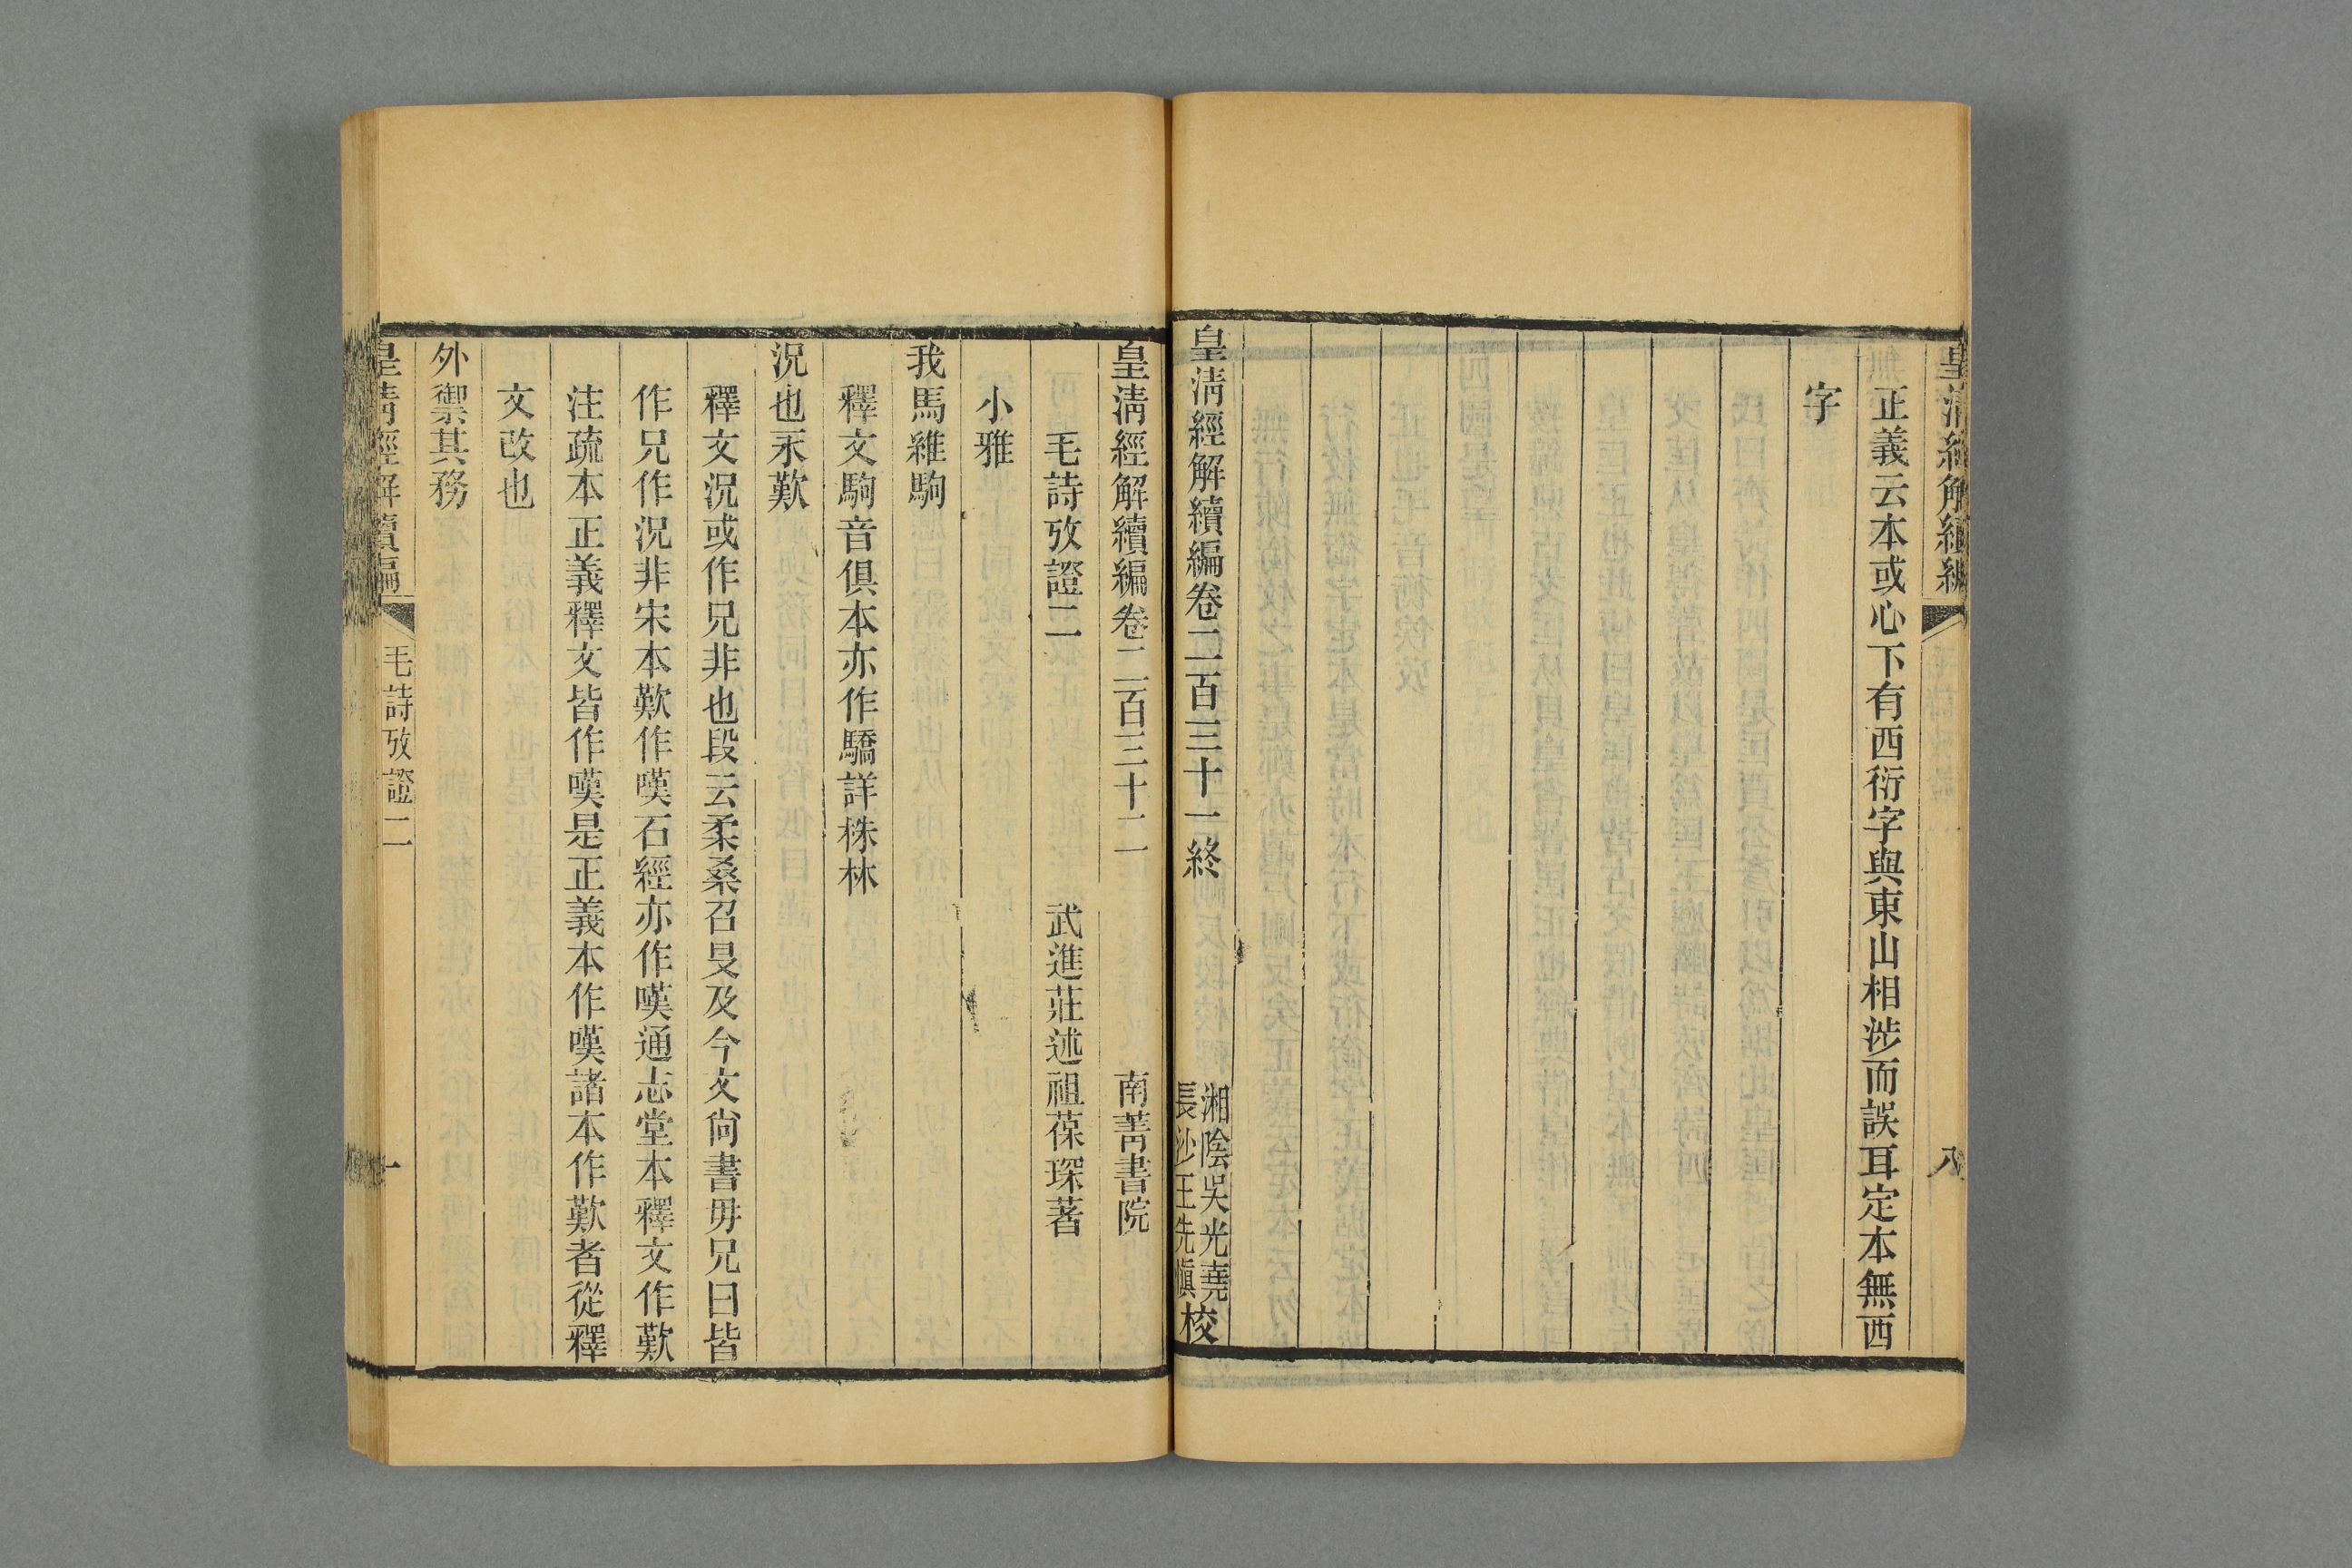 皇清經解續編
八
正義云本或心下有西衍字與東山相涉而誤耳定本無西
字
皇清經解續編卷二百三十一終
湘陰吳光堯
長沙王先慎
校
皇清經解續編卷二百三十二
南菁書院
毛詩攷證二
武進莊述祖葆琛著
小雅
我馬維駒
釋文駒音俱本亦作驕詳株林
況也永歎
釋文況或作兄非也段云柔桑召旻及今文尚書毋兄曰皆
作兄作況非宋本歎作嘆石經亦作嘆通志堂本釋文作歎
注疏本正義釋文皆作嘆是正義本作嘆諸本作歎者從釋
文改也
外禦其務
皇清經解續編
毛詩攷證二
一